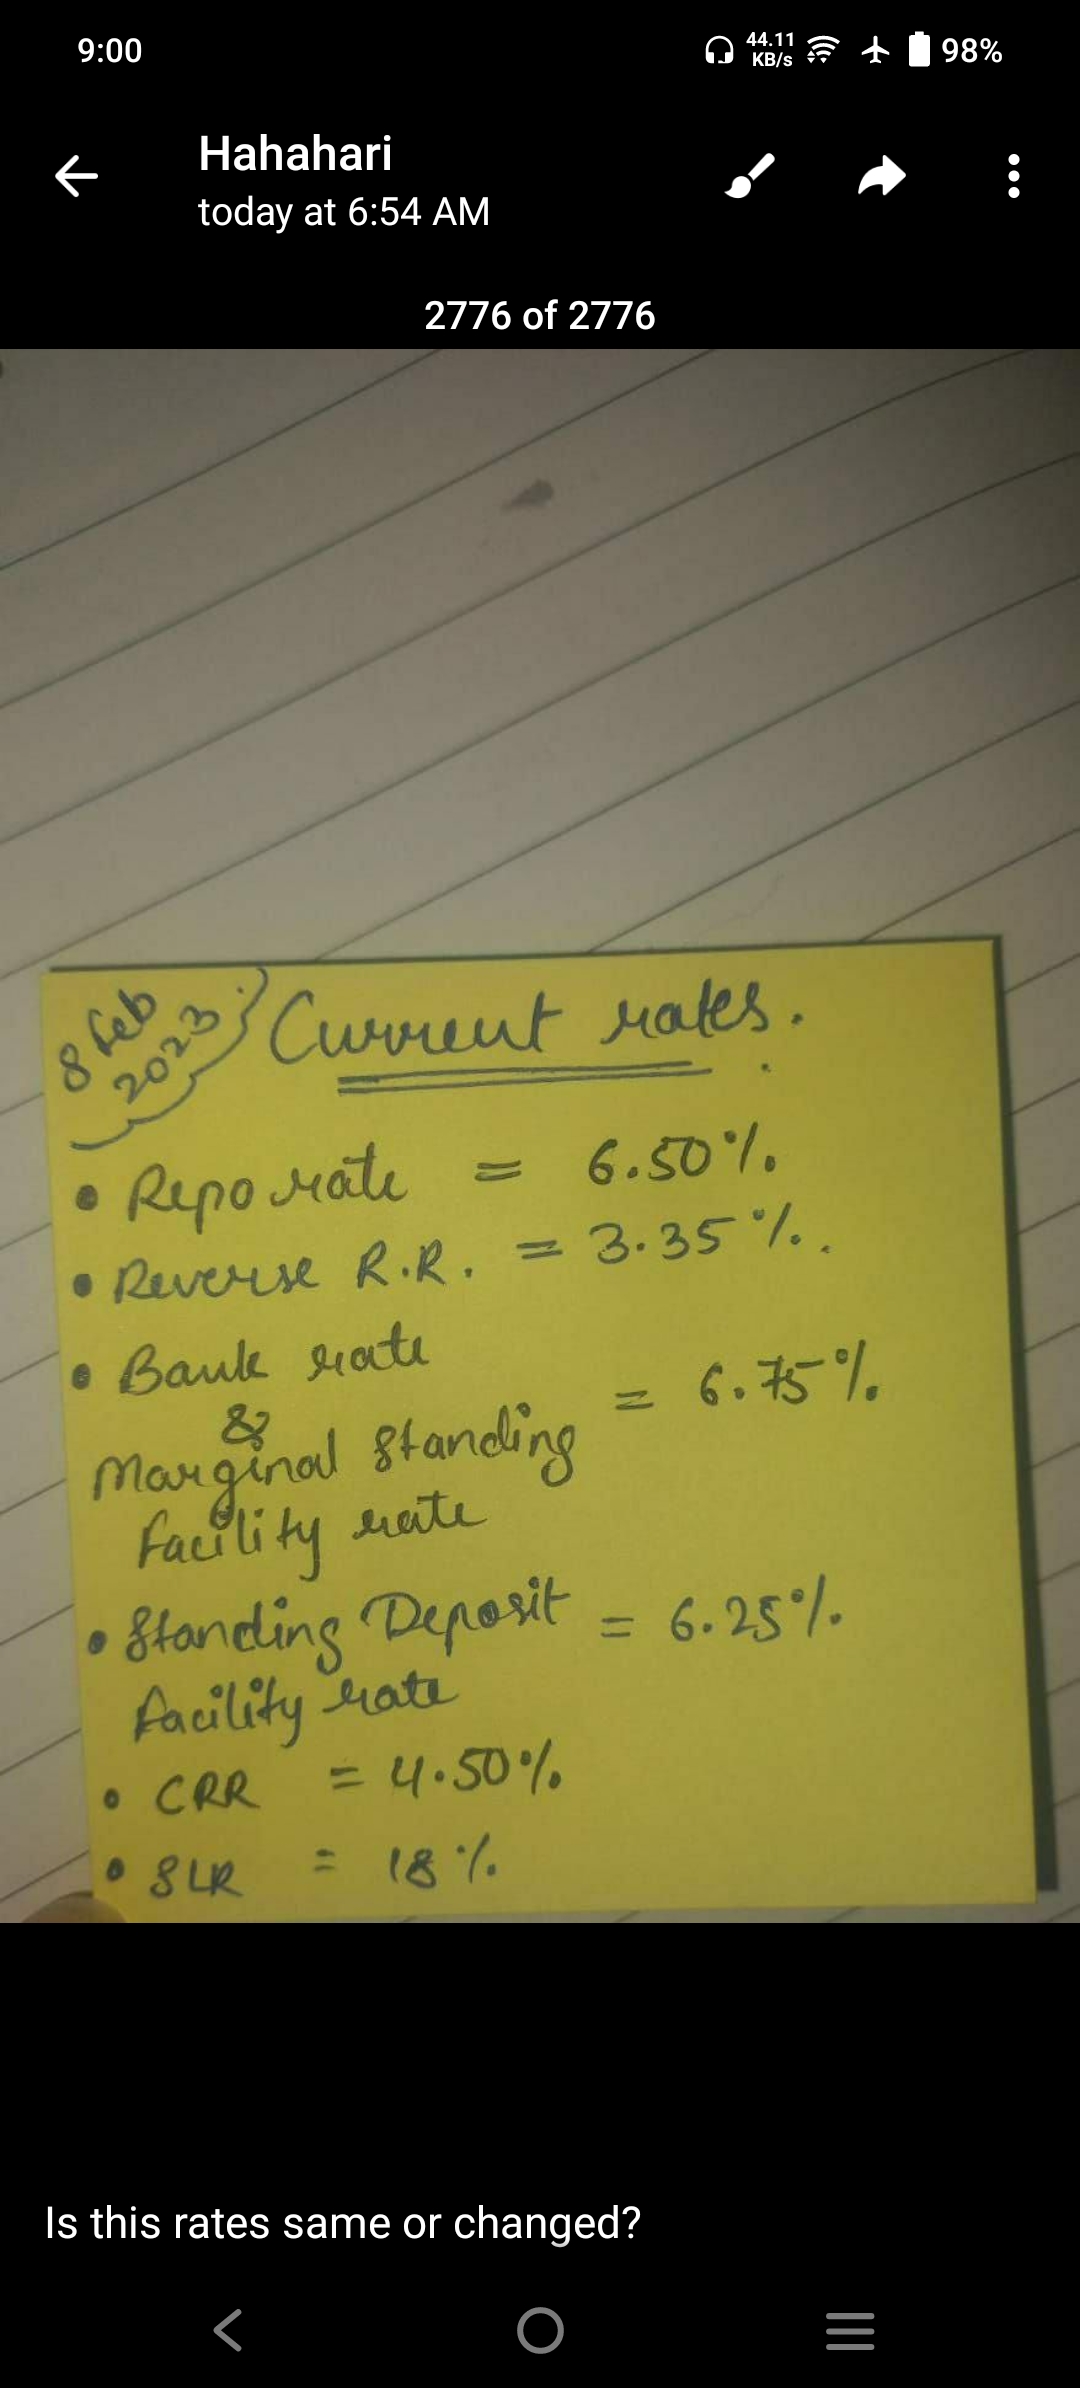 9:00
44.11
KB/s
98%
Hahahari
today at 6:54 AM
2776 of 2776
8 Feb
2023
Current rates.
• Repo rate = 6.50%
• Reverse R.R. = 3.35%.
• Bank rate
&
Marginal Standing = 6.75%
Facility rate
• Standing Deposit = 6.25%
facility rate
• CRR = 4.50%
• SLR = 18%
Is this rates same or changed?